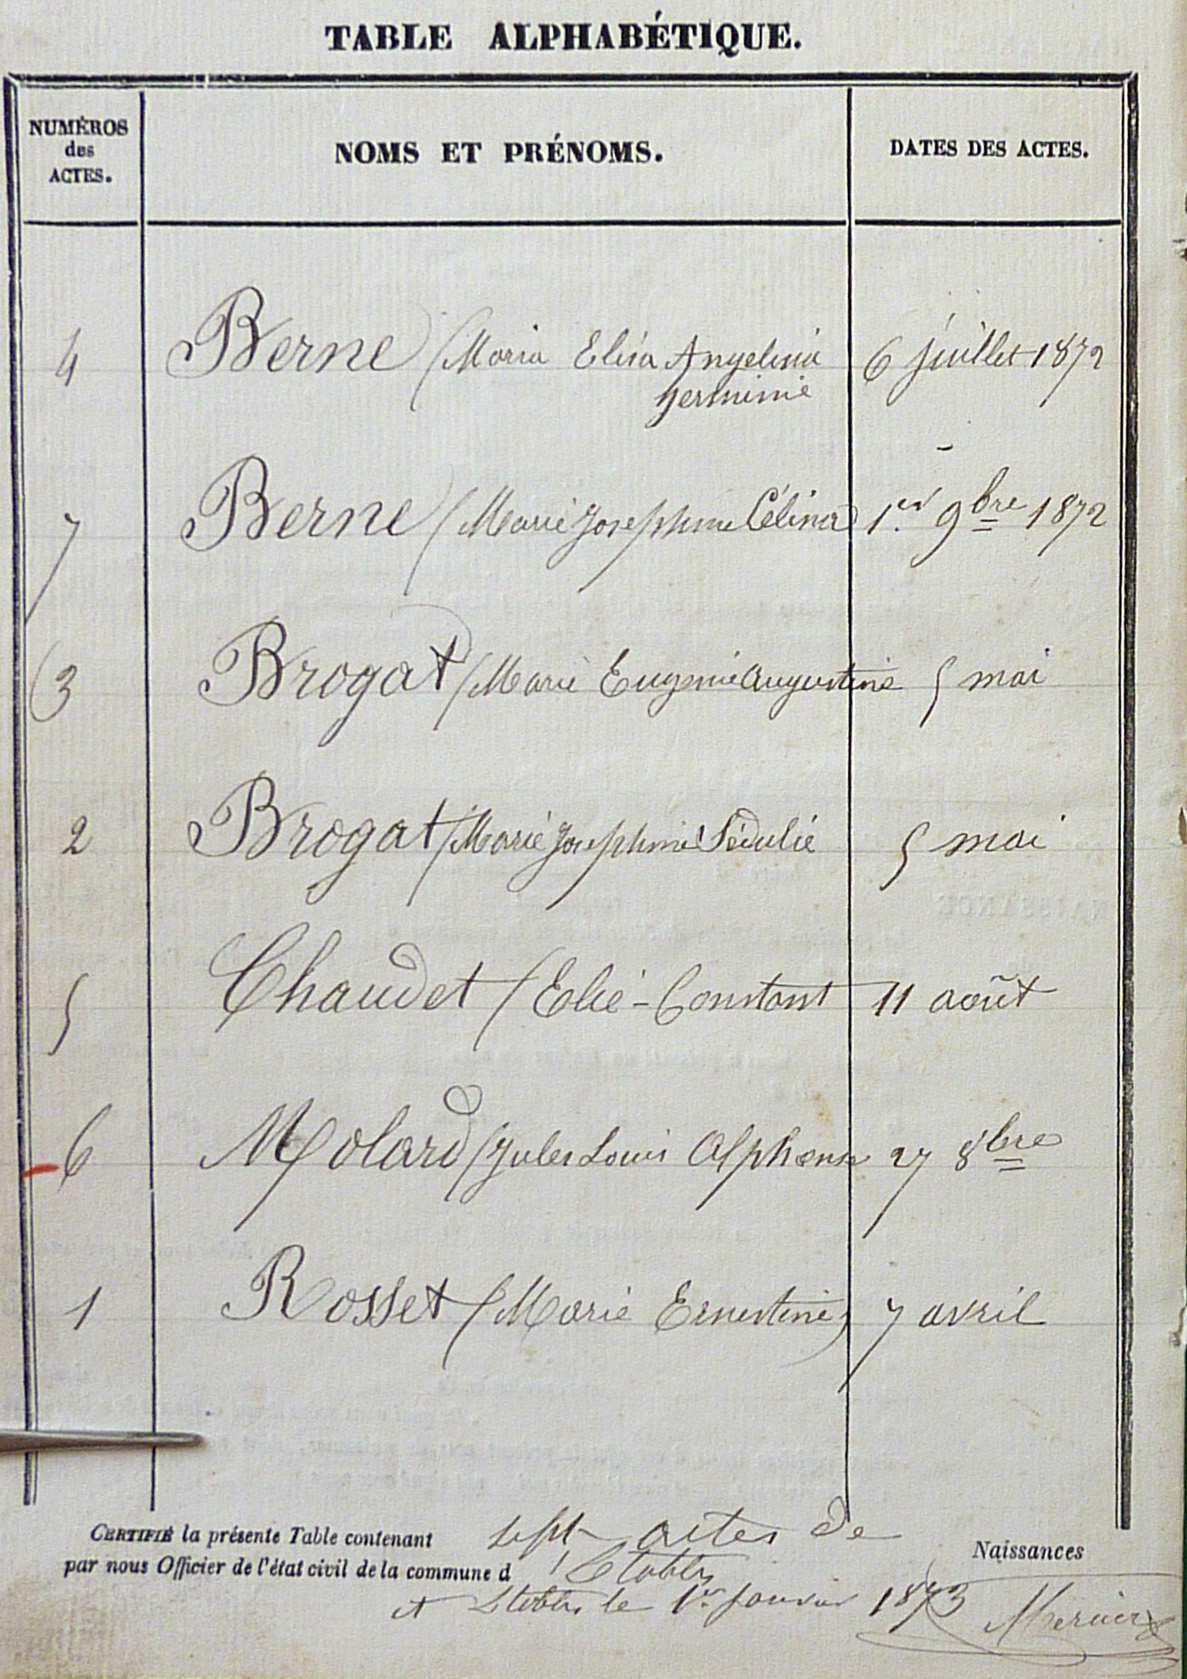 TABLE ALPHABÉTIQUE.
NUMÉROS
des
ACTES.
NOMS ET PRÉNOMS.
DATES DES ACTES.
4 Berne (Maria Elisa Angelina 6 juillet 1872
herminie
7 Berne (Marie Josephine Célina) 1er 9bre 1872
3 Brogat (Marie Eugenie Augustine 5 mai
2 Brogat (Marie Josephine Sédulie 5 mai
5 Chaudet (Elie-Constant 11 août
6 Molard (Jules Louis Alphonse 27 8bre
1 Rosset (Marie Ernestine) 7 avril
CERTIFIÉ la présente Table contenant sept actes de
Naissances
par nous Officier de l'état civil de la commune d'Etables
A Etables le 1er Janvier 1873